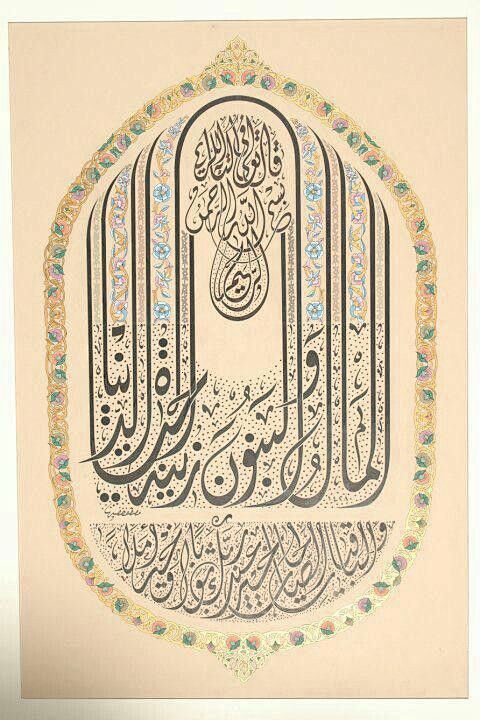 بسم الله الرحمن
الرحيم
المال والبنون زينة الحياة الدنيا
والباقيات الصالحات خير عند ربك ثوابا وخير أملا